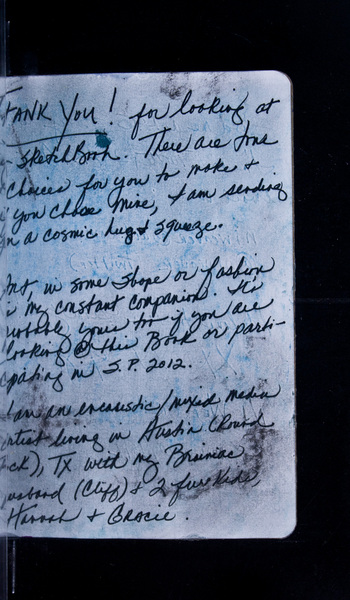 THANK YOU! for looking at
SketchBook. There are tons
choices for you to make &
if you chose mine, I am sending
you a cosmic hug & squeeze.
Art in some shape or fashion
is my constant companion. It's
probably yours too if you are
looking @ this Book or parti-
cipating in S.P. 2012.
I am an encaustic/mixed media
artist living in Austin (Round
Rock), TX with my Brainiac
husband (Cliff) & 2 fur kids,
Hannah & Gracie.